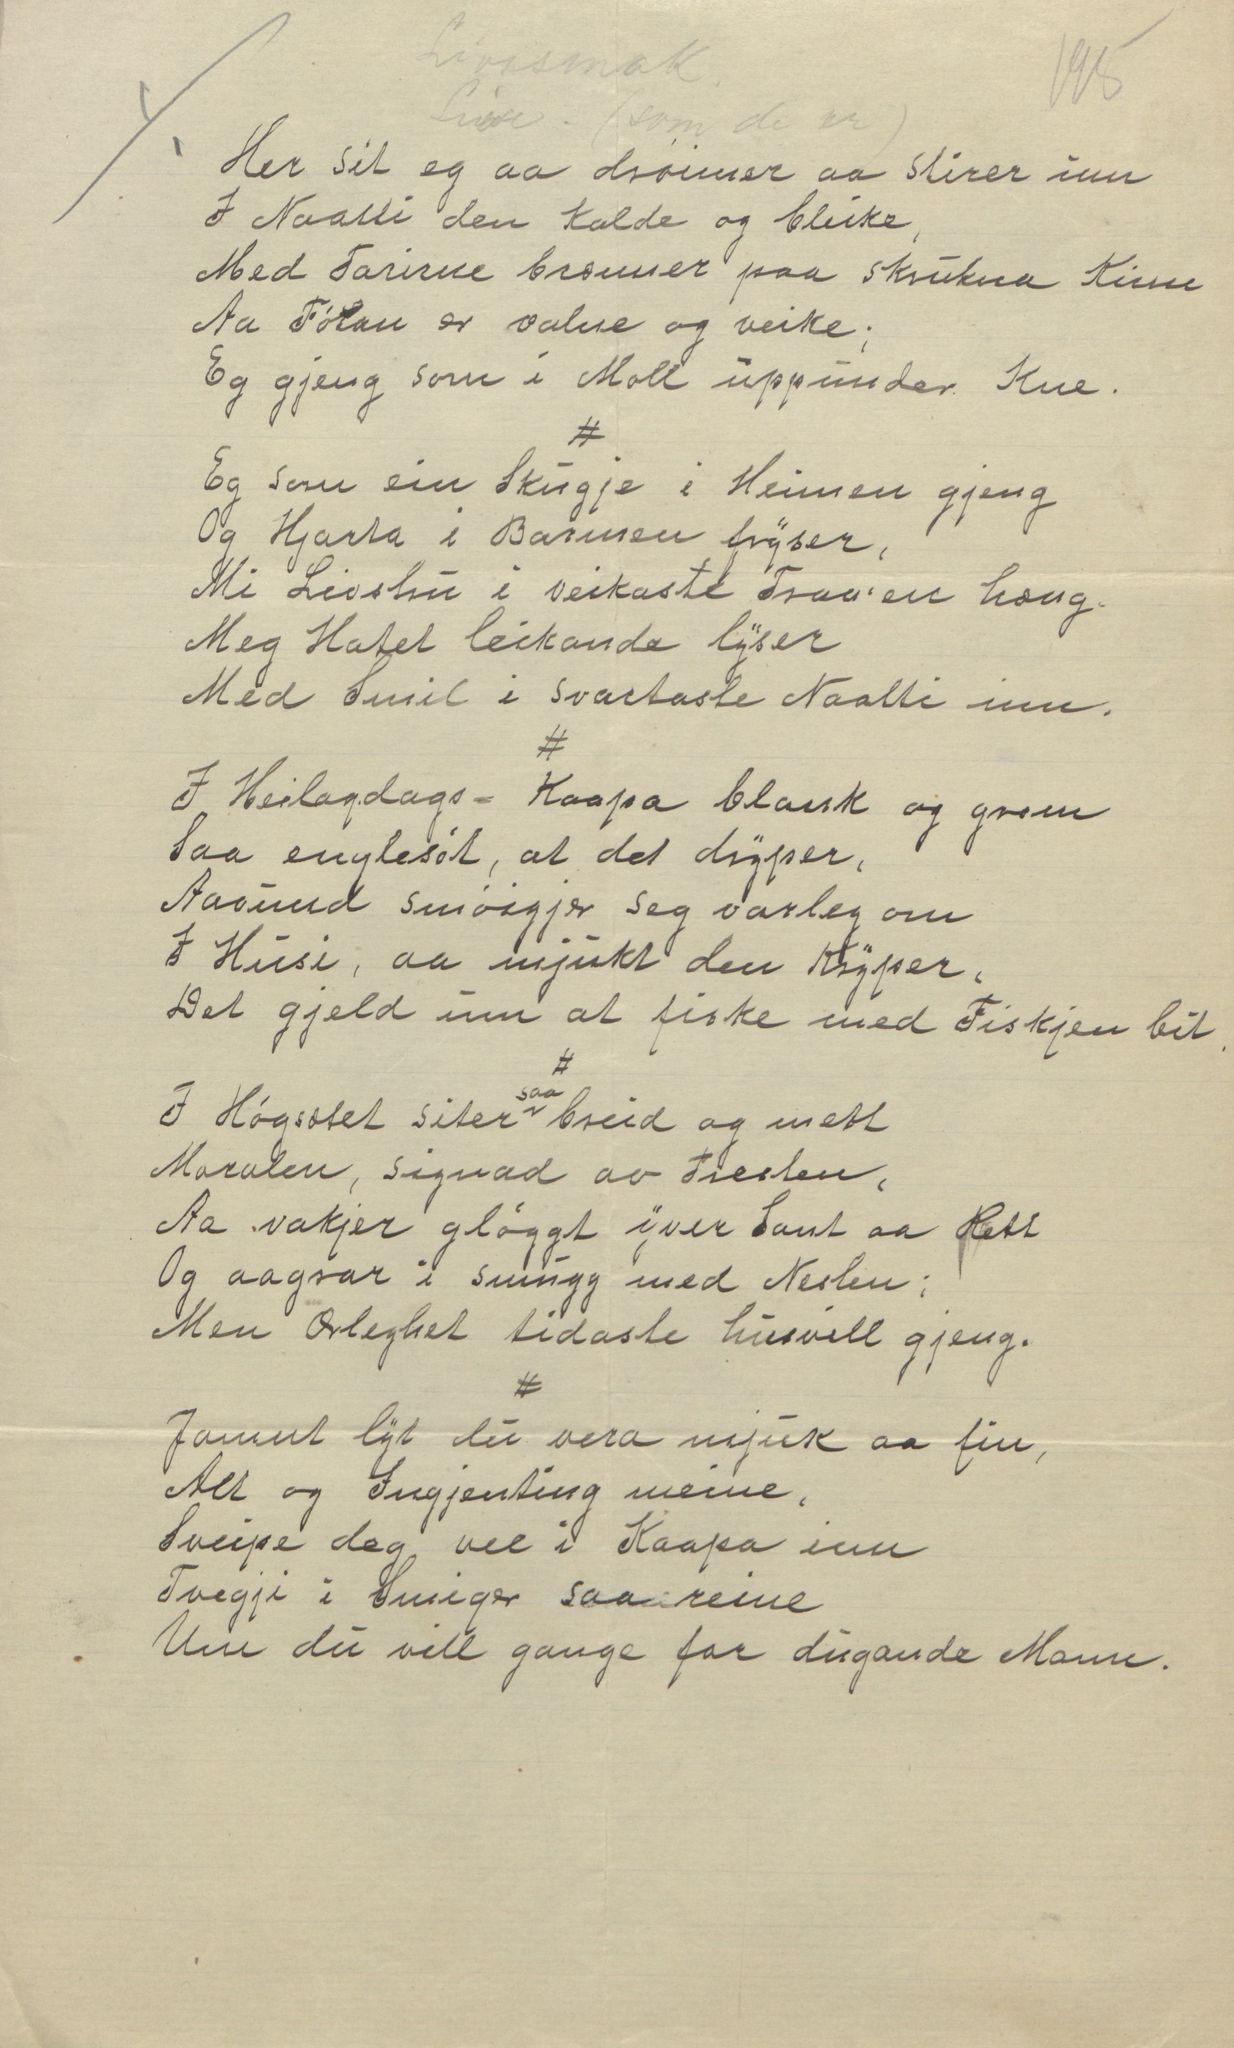 Livssmak.
Livse - (som de er)
1915
Her sit eg aa drøimer aa stirer inn
I Naatti den kalde og bleike,
Med Tarirne brenner paa skrukna Kinn
Aa Fótan er valne og veike;
Eg gjeng som i Moll uppunder Kne.
#
Eg som ein Skugje i Heimen gjeng
Og Hjarta i Barmen frÿser,
Mi Livslun i veikaste Traa'en heng.
Meg Hatet leikande lÿser
Med Smil i svartaste Naatti inn.
#
I Heilagdags- Kaapa blank og grom
Saa englesót, at det drÿper,
Aavund smóigjer seg varleg om
I Husi, aa mjukt den krÿper,
Det gjeld um at fiske med Fiskjen bit.
#
I Hógsætet siter saa breid og mett
Moralen, signad av Presten,
Aa vakjer glóggt ÿver Sant aa Rett
Og aagrar i smugg med Nesten;
Men Ærleghet tidaste husvill gjeng.
#
Jamnt lÿt du vera mjuk aa fin,
Alt og Ingjenting meine,
Sveipe deg vel i Kaapa inn
Tvegji i Smiger saa reine
Um du vill gange for dugande Mann.